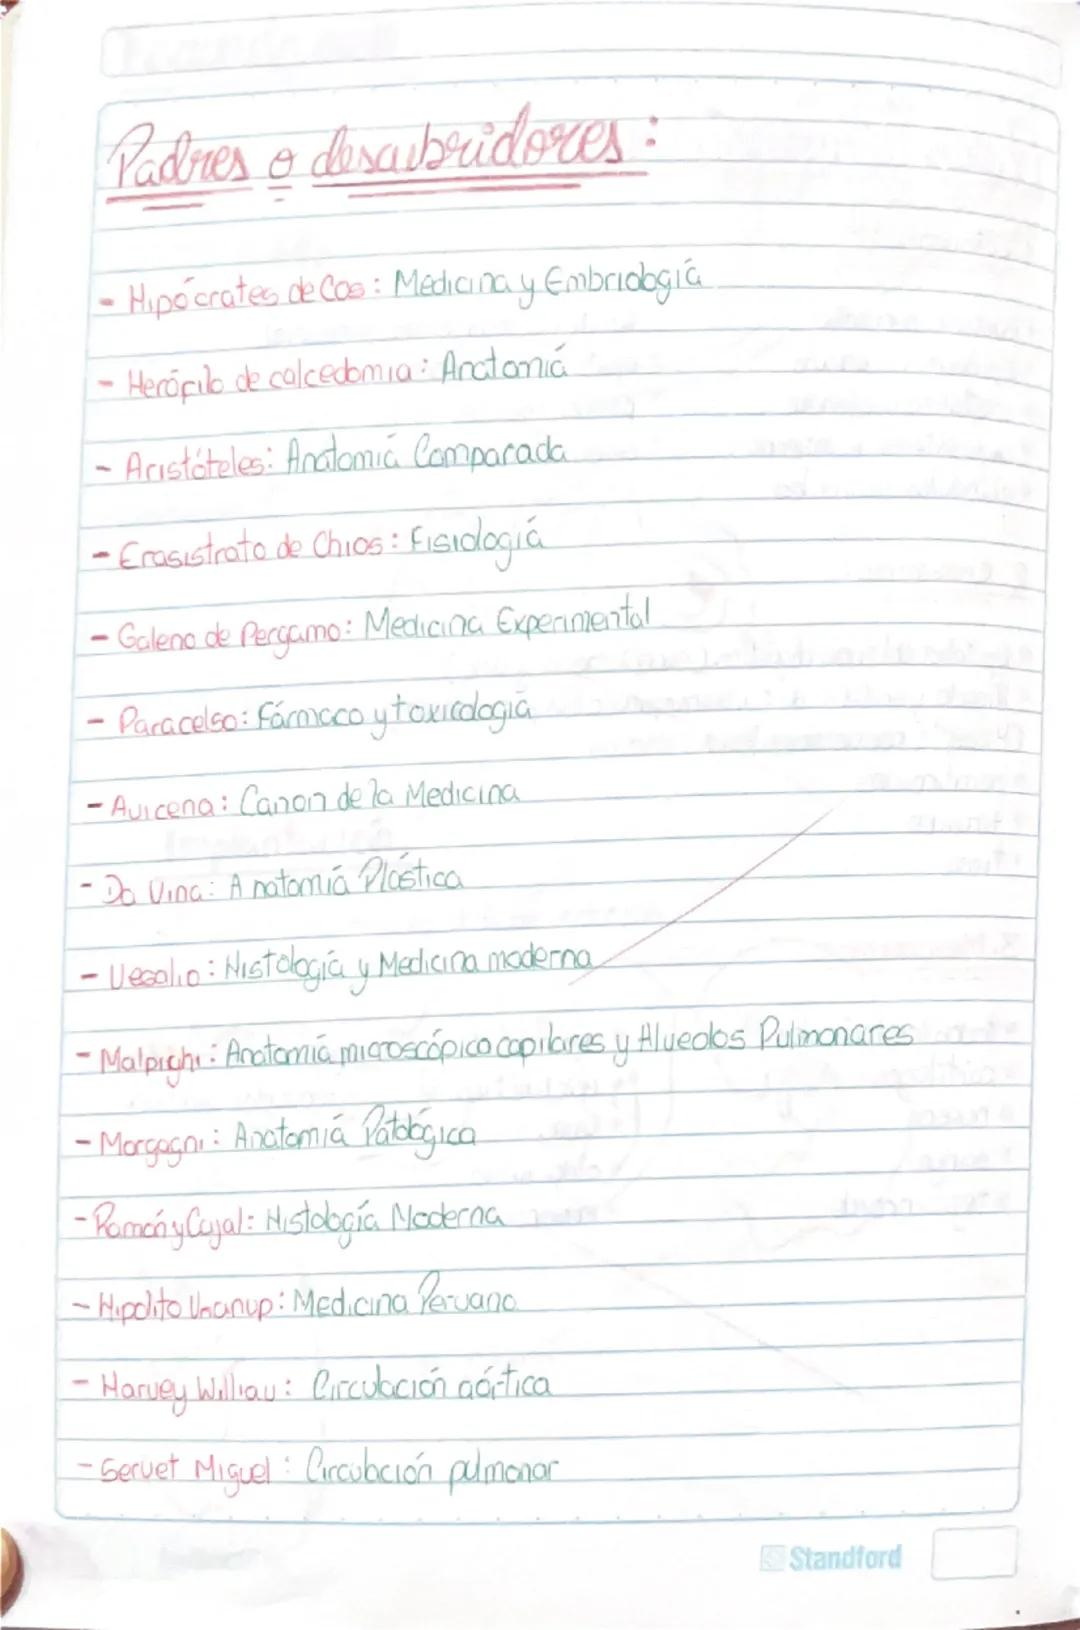 Padres o descubridores:
- Hipócrates de Cos: Medicina y Embriología
- Herófilo de calcedomia: Anatomiá
- Aristóteles: Anatomiá Comparada
- Erasistrato de Chios: Fisiologiá
- Galeno de Pergamo: Medicina Experimental
- Paracelso: Fármaco y toxicologiá
- Avicena: Canon de la Medicina
- Da Vinci: Anatomiá Plástica
- Vesalio: Histología y Medicina moderna
- Malpighi: Anatomiá microscópico capilares y Alveolos Pulmonares
- Morgagni: Anatomiá Patológica
- Ramón y Cajal: Histología Moderna
- Hipolito Unanup: Medicina Peruano
- Harvey Williau: Circulación aórtica
- Servet Miguel: Circulación pulmonar
Standford